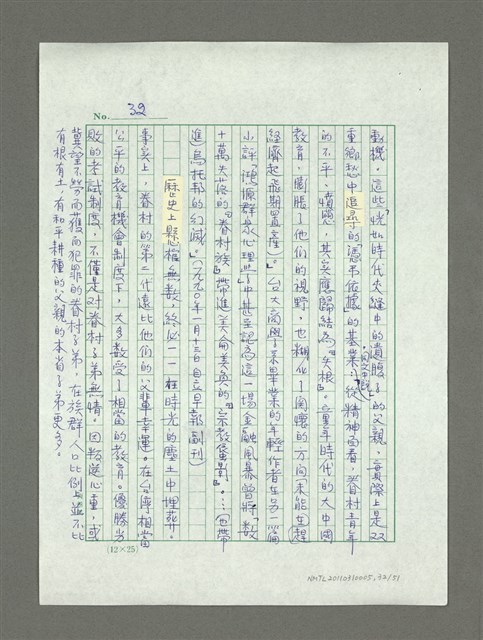 No. 32
動機，這些「恍如時代夾縫中的遺腹子」的父親，實際上是双
重鄉愁中追尋的「憑弔依據」的基業；從精神面看，眷村青年
的不平、憤懣，其實應歸結為『失根』。童年時代的大中國
教育，膨脹了他們的視野，也糊化了胸懷的方向（未能在
經濟起飛期置產）。」台大商學系畢業的年輕作者在另一篇
小評「鴻源群眾心理學」中甚至認為這一場金融風暴曾將「數
十萬失落的『眷村族』帶進美侖美奐的『宗教備影』…也帶
進烏托邦的幻滅」（一九九〇年一月十二日自立早報副刊）
歷史上懸樁無數，終必一一在時光的塵土中埋葬。
事实上，眷村的第二代遠比他們的父輩幸運。在台灣相當
公平的教育機會制度下，大多數受了相當的教育。優勝劣
敗的考試制度，不僅是對眷村子弟無情，因叛逆心重，或
冀望不勞而獲而犯罪的眷村子弟，在族群人口比例上並不比
有根有土、有和平耕種的父親的本省子弟更多。
(12×25)
NMTL20110310005, 32/51